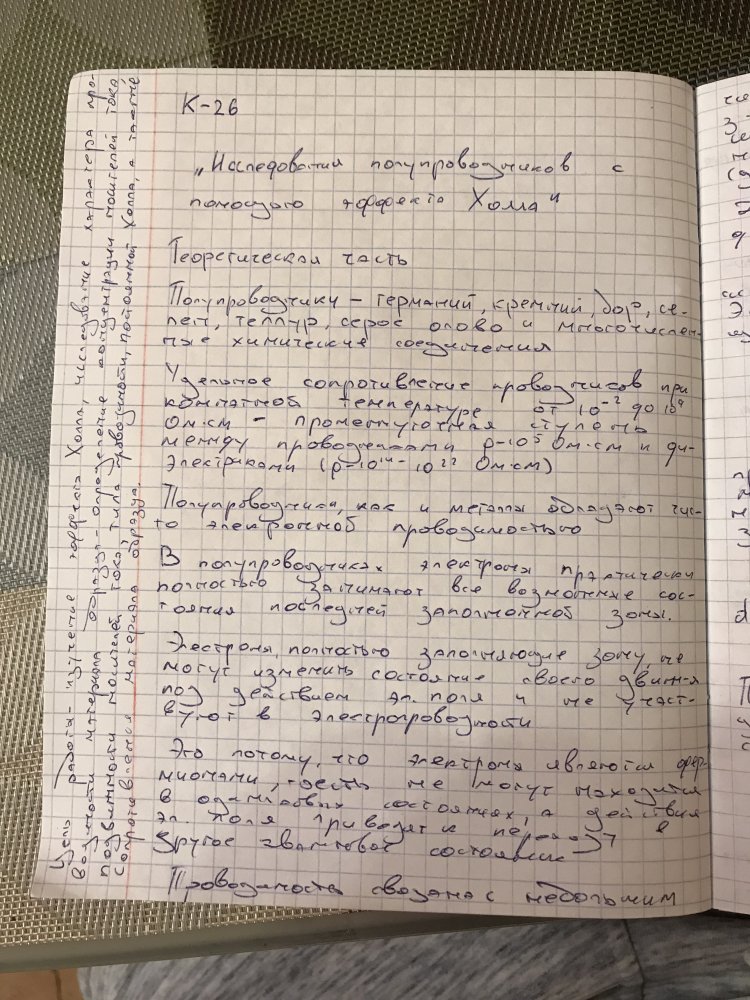 К-26
„Исследования полупроводников с
помощью эффекта Холла"
Теоретическая часть
Полупроводники – германий, кремний, бор, се-
лен, теллур, серое олово и многочислен-
ные химические соединения
Удельное сопротивление проводников при
комнатной температуре от 10⁻² до 10⁹
Ом·см – промежуточная ступень
между проводниками ρ~10⁵ Ом·см и ди-
электриками (ρ~10¹⁴ – 10²² Ом·см)
Полупроводники, как и металлы обладают чис-
то электронной проводимостью
В полупроводниках электроны практически
полностью занимают все возможные сос-
тояния последней заполненной зоны.
Электроны, полностью заполняющие зону, не
могут изменить состояние своего движ-я
под действием эл. поля и не участ-
вуют в электропроводности
Это потому, что электроны являются фер-
мионами, т.есть не могут находится
в одинаковых состояниях, а действия
эл. поля приводят к переходу в
другое квантовое состояние
Проводимость связана с небольшим
Цель работы – изучение эффекта Холла, исследование характера про-
водимости материала образца – определение концентрации носителей тока,
подвижности носителей тока, типа проводимости, постоянной Холла, а также
сопротивления материала образца.